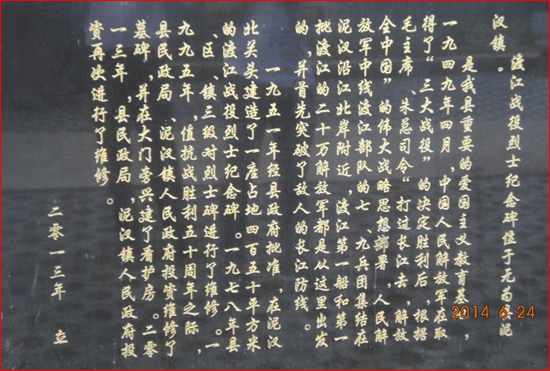 渡江战役烈士纪念碑位于无为县泥
汊镇。
是我县重要的爱国主义教育基地,
一九四九年四月,中国人民解放军在取
得了“三大战役”的决定胜利后,根据
毛主席、朱总司令“打过长江去,解放
全中国”的伟大战略思想部署,人民解
放军中线渡江部队的七、九兵团集结在
泥汊沿江北岸附近,渡江第一船和第一
批渡江的二十万解放军都是从这里出发
的,并首先突破了敌人的长江防线。
一九五一年经县政府批准,在泥汊
北关头建造了一座占地四百五十平方米
的渡江战役烈士纪念碑。一九七八年县
、区、镇三级对烈士碑进行了维修。一
九九五年,值抗战胜利五十周年之际,
县民政局、泥汊镇人民政府投资维修了
墓碑,并在大门旁兴建了看护房。二零
一三年,县民政局、泥汊镇人民政府投
资再次进行了维修。
二零一三年 立
2014.6.24